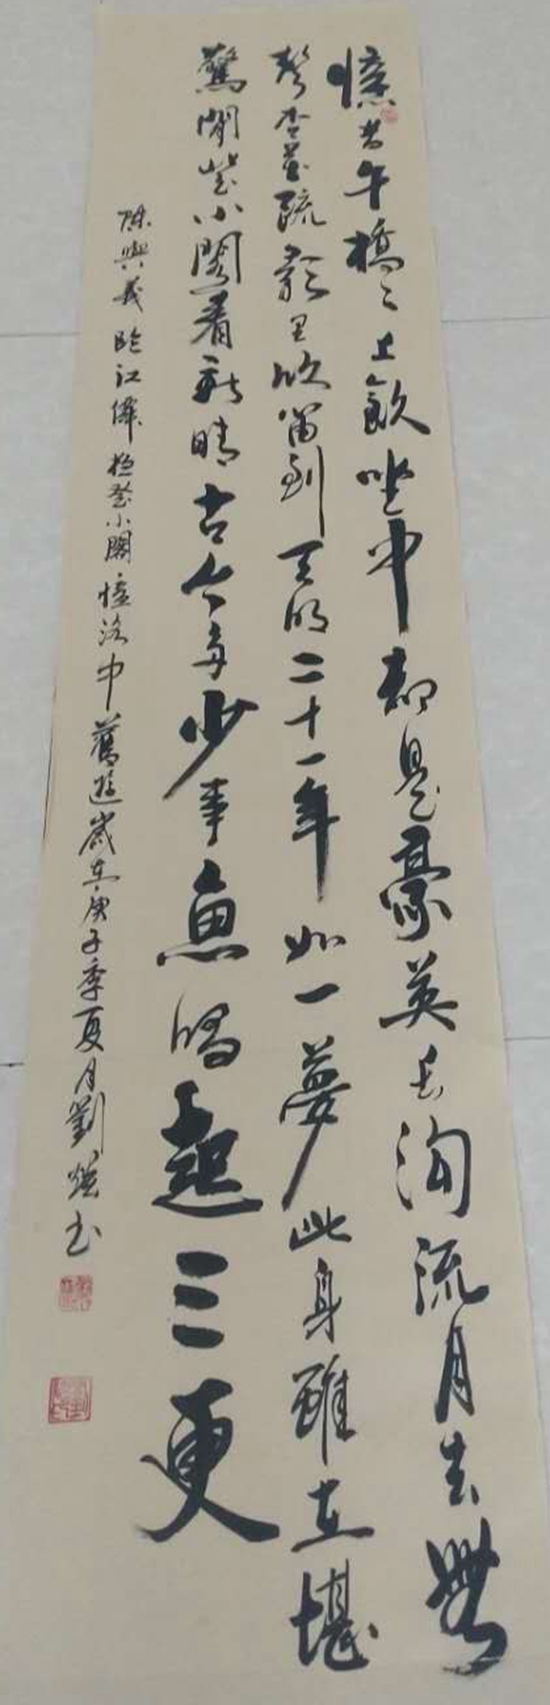 憶昔午橋〻上飲坐中都是豪英長溝流月去無
聲杏花疏影里吹笛到天明二十一年如一夢此身雖在堪
驚閒登小閣看新晴古今多少事魚唱起三更
陳與義臨江僊夜登小閣憶洛中舊遊歲在庚子季夏月劉書